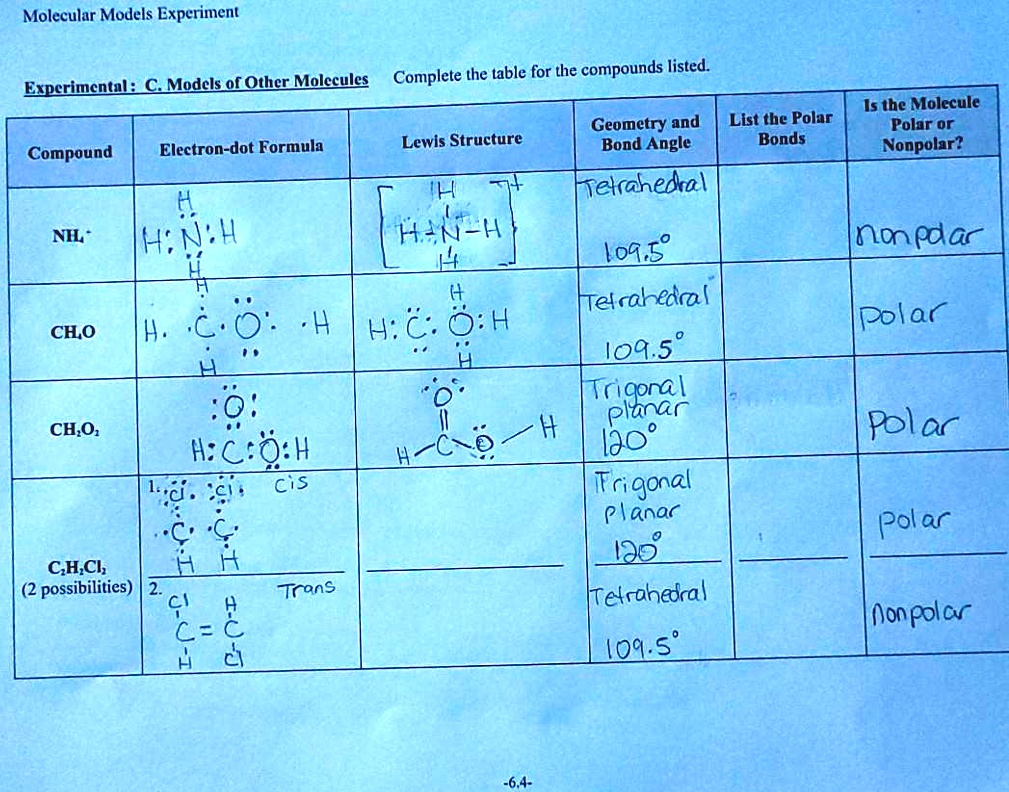 Molecular Models Experiment
Experimental: C. Models of Other Molecules Complete the table for the compounds listed.
Compound Electron-dot Formula Lewis Structure Geometry and Bond Angle List the Polar Bonds Is the Molecule Polar or Nonpolar?
NH₄⁺
H
H:N:H
H
[H
H-N-H
H]+
Tetrahedral
109.5°
nonpolar
CH₄O
H
H. .C. O: .H
H
H
H: C: O:H
H
Tetrahedral
109.5°
polar
CH₂O₂
:O:
H:C:O:H
O
||
H-C-O-H
Trigonal
planar
120°
Polar
C₂H₂Cl₂
(2 possibilities)
1. :Cl. :Cl: Cis
.C. .C.
H H
Trigonal
Planar
120°
polar
2. Trans
Cl H
C=C
H Cl
Tetrahedral
109.5°
nonpolar
-6.4-